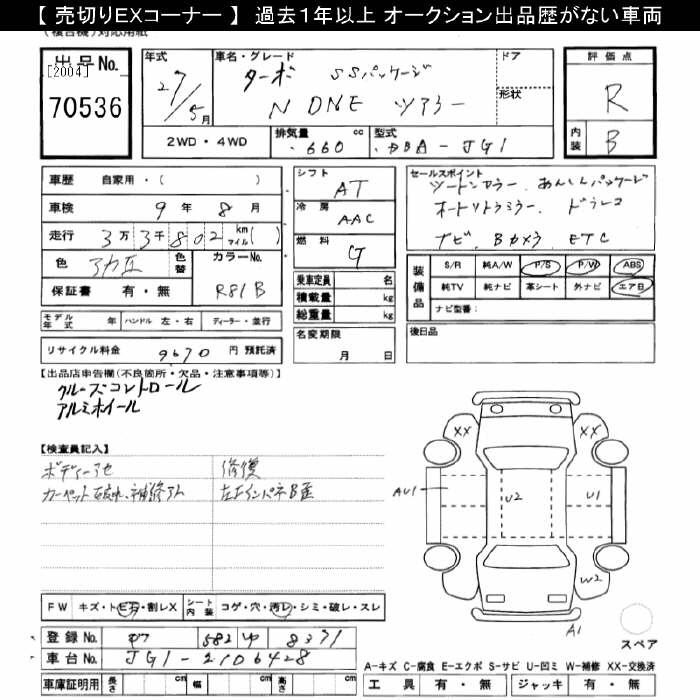 【 売切りEXコーナー 】 過去1年以上 オークション出品歴がない車両
出品No.
[2004]
70536
年式
27/5月
車名・グレード
ターボ SSパッケージ
N ONE ツアラー
ドア
形状
評価点
R
内装
B
2WD・4WD
排気量 660 cc
型式 DBA-JG1
車歴 自家用・( )
車検 9年 8月
走行 3万3千802 km マイル( )
色
色替
カラーNo. R81B
保証書 有・無
シフト AT
冷房 AAC
燃料 G
乗車定員 名
積載量 kg
総重量 kg
セールスポイント
ツートンカラー、あんしんパッケージ
オートリトラミラー、ドラレコ
ナビ、Bカメラ、ETC
装備品
S/R 純A/W P/S P/W ABS
純TV 純ナビ 革シート 外ナビ エアB
ナビ型番:
モデル年式 年 ハンドル 左・右 ディーラー・並行
リサイクル料金 9670 円 預託済
名変期限
月 日
後日品
【出品店申告欄(不良箇所・欠品・注意事項等)】
クルーズコントロール
アルミホイール
【検査員記入】
ボディー
修復
カーペット
補修アト
左Fインパネ
XX XX
AU1 U2 U1
W2
A1
スペア
FW キズ・ト
割レX シート内装 コゲ・穴・汚レ・シミ・破レ・スレ
登録No. 582 ゆ 8371
車台No. JG1-2106428
車庫証明用 長さ cm 幅 cm 高さ cm
A-キズ C-腐食 E-エクボ S-サビ U-凹ミ W-補修 XX-交換済
工具 有・無 ジャッキ 有・無